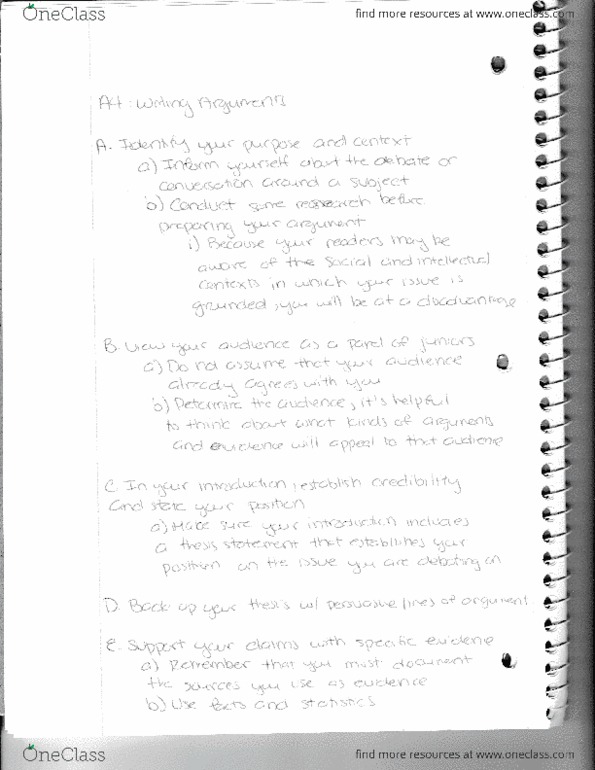 OneClass
find more resources at www.oneclass.com
A4: Writing Arguments
A. Identify your purpose and context
a) Inform yourself about the debate or
conversation around a subject
b) Conduct some research before
preparing your argument
i) Because your readers may be
aware of the social and intellectual
contexts in which your issue is
grounded, you will be at a disadvantage
B. View your audience as a panel of juriors
a) Do not assume that your audience
already agrees with you
b) Determine the audience, it's helpful
to think about what kinds of arguments
and evidence will appeal to that audience
C. In your introduction, establish credibility
and state your position
a) Make sure your introduction includes
a thesis statement that establishes your
position on the issue you are debating on
D. Back up your thesis w/ persuasive lines of argument
E. Support your claims with specific evidence
a) Remember that you must document
the sources you use as evidence
b) Use facts and statistics
OneClass
find more resources at www.oneclass.com